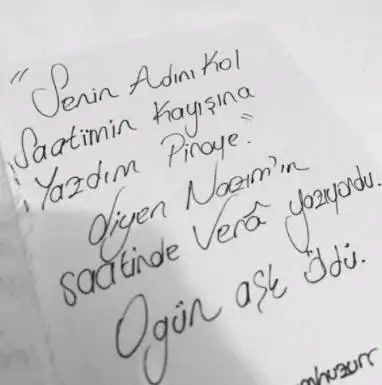 "Senin Adını Kol
Saatimin Kayışına
Yazdım Piraye."
diyen Nazım'ın
saatinde Verâ yazıyordu.
O gün aşk öldü.